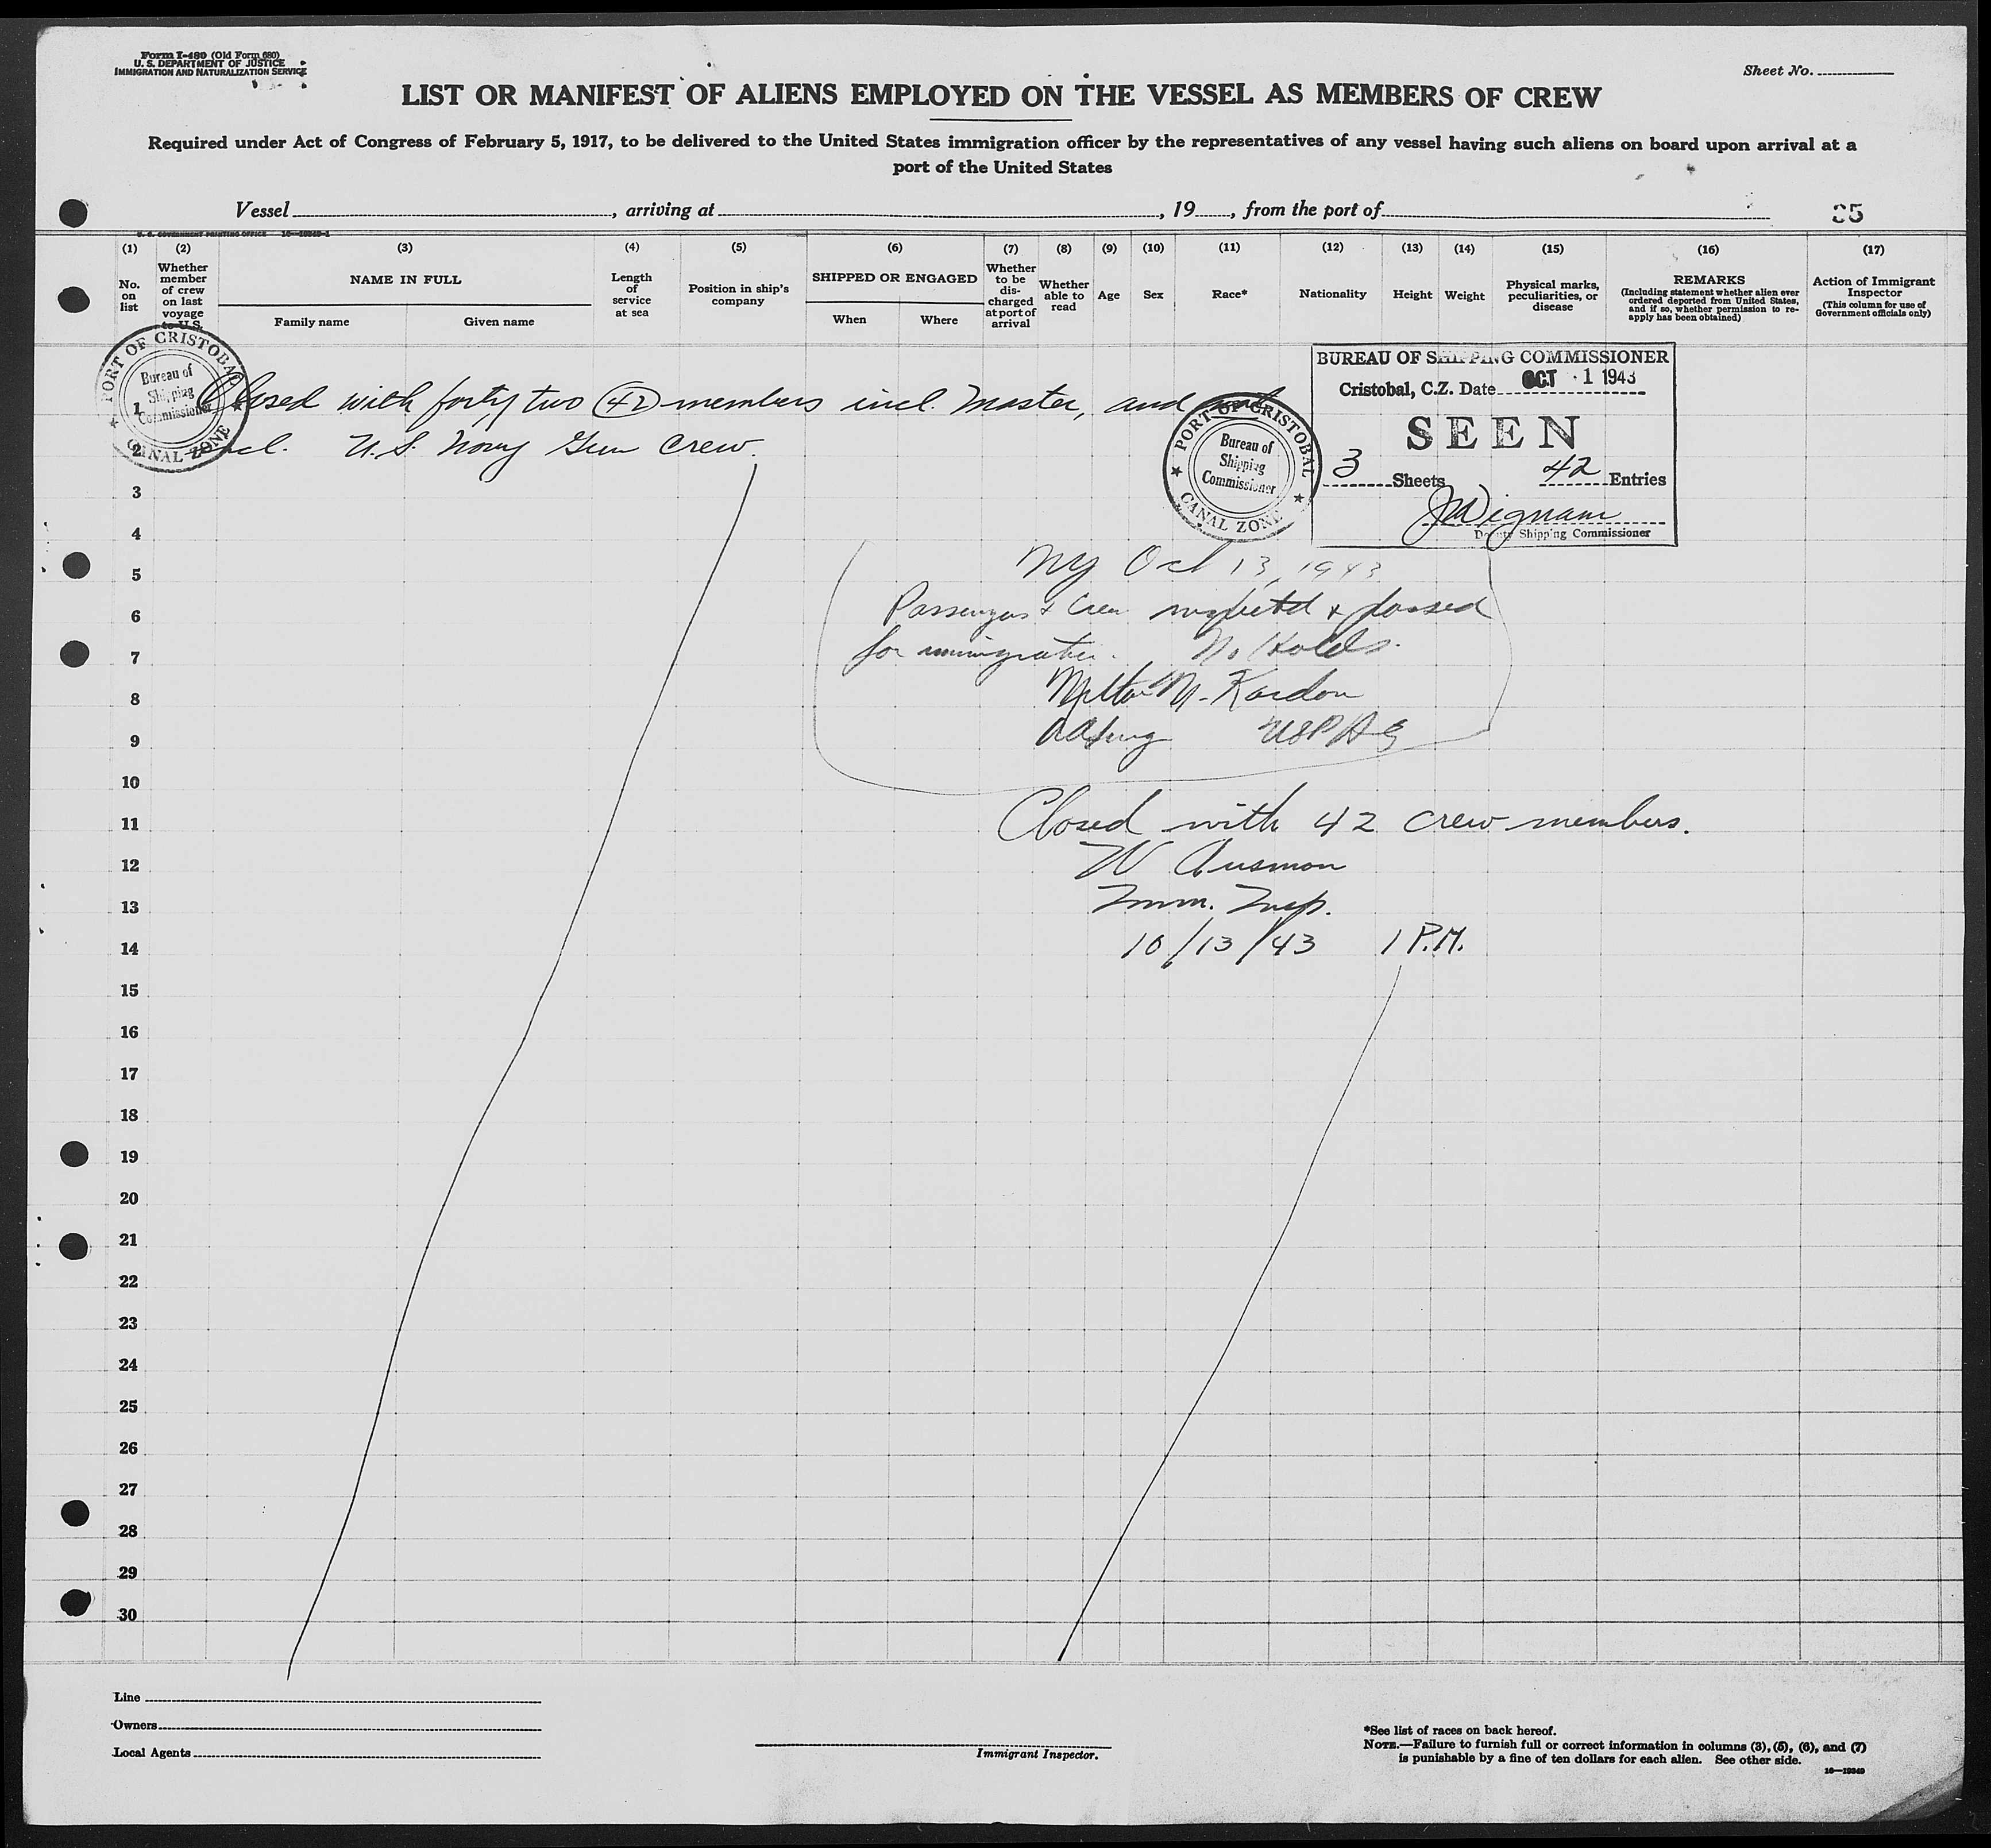 Form I-480 (Old Form 680)
U. S. DEPARTMENT OF JUSTICE
IMMIGRATION AND NATURALIZATION SERVICE
Sheet No.
LIST OR MANIFEST OF ALIENS EMPLOYED ON THE VESSEL AS MEMBERS OF CREW
Required under Act of Congress of February 5, 1917, to be delivered to the United States immigration officer by the representatives of any vessel having such aliens on board upon arrival at a
port of the United States
Vessel , arriving at , 19 , from the port of
35
U. S. GOVERNMENT PRINTING OFFICE 16—19349-1
(1) (2) (3) (4) (5) (6) (7) (8) (9) (10) (11) (12) (13) (14) (15) (16) (17)
No. on list
Whether member of crew on last voyage to U.S.
NAME IN FULL
Family name Given name
Length of service at sea
Position in ship's company
SHIPPED OR ENGAGED
When Where
Whether to be discharged at port of arrival
Whether able to read
Age
Sex
Race*
Nationality
Height
Weight
Physical marks, peculiarities, or disease
REMARKS
(Including statement whether alien ever
ordered deported from United States,
and if so, whether permission to re-
apply has been obtained)
Action of Immigrant
Inspector
(This column for use of
Government officials only)
PORT OF CRISTOBAL
Bureau of
Shipping
Commissioner
CANAL ZONE
BUREAU OF SHIPPING COMMISSIONER
Cristobal, C.Z. Date OCT 1 1943
SEEN
3 Sheets 42 Entries
J Dignam
Deputy Shipping Commissioner
PORT OF CRISTOBAL
Bureau of
Shipping
Commissioner
CANAL ZONE
1 Closed with forty two (42) members incl. Master, and not
2 incl. U.S. Navy Gun Crew.
3
4
5
6
7
8
9
10
11
12
13
14
15
16
17
18
19
20
21
22
23
24
25
26
27
28
29
30
NY Oct 13, 1943
Passengers & Crew inspected & passed
for immigration. No Holds.
Milton M. Kardon
USPHS
Closed with 42 crew members.
W Ausmon
Imm. Insp.
10/13/43 1 P.M.
Line
Owners
Local Agents
Immigrant Inspector.
*See list of races on back hereof.
NOTE.—Failure to furnish full or correct information in columns (3), (5), (6), and (7)
is punishable by a fine of ten dollars for each alien. See other side.
16—19349